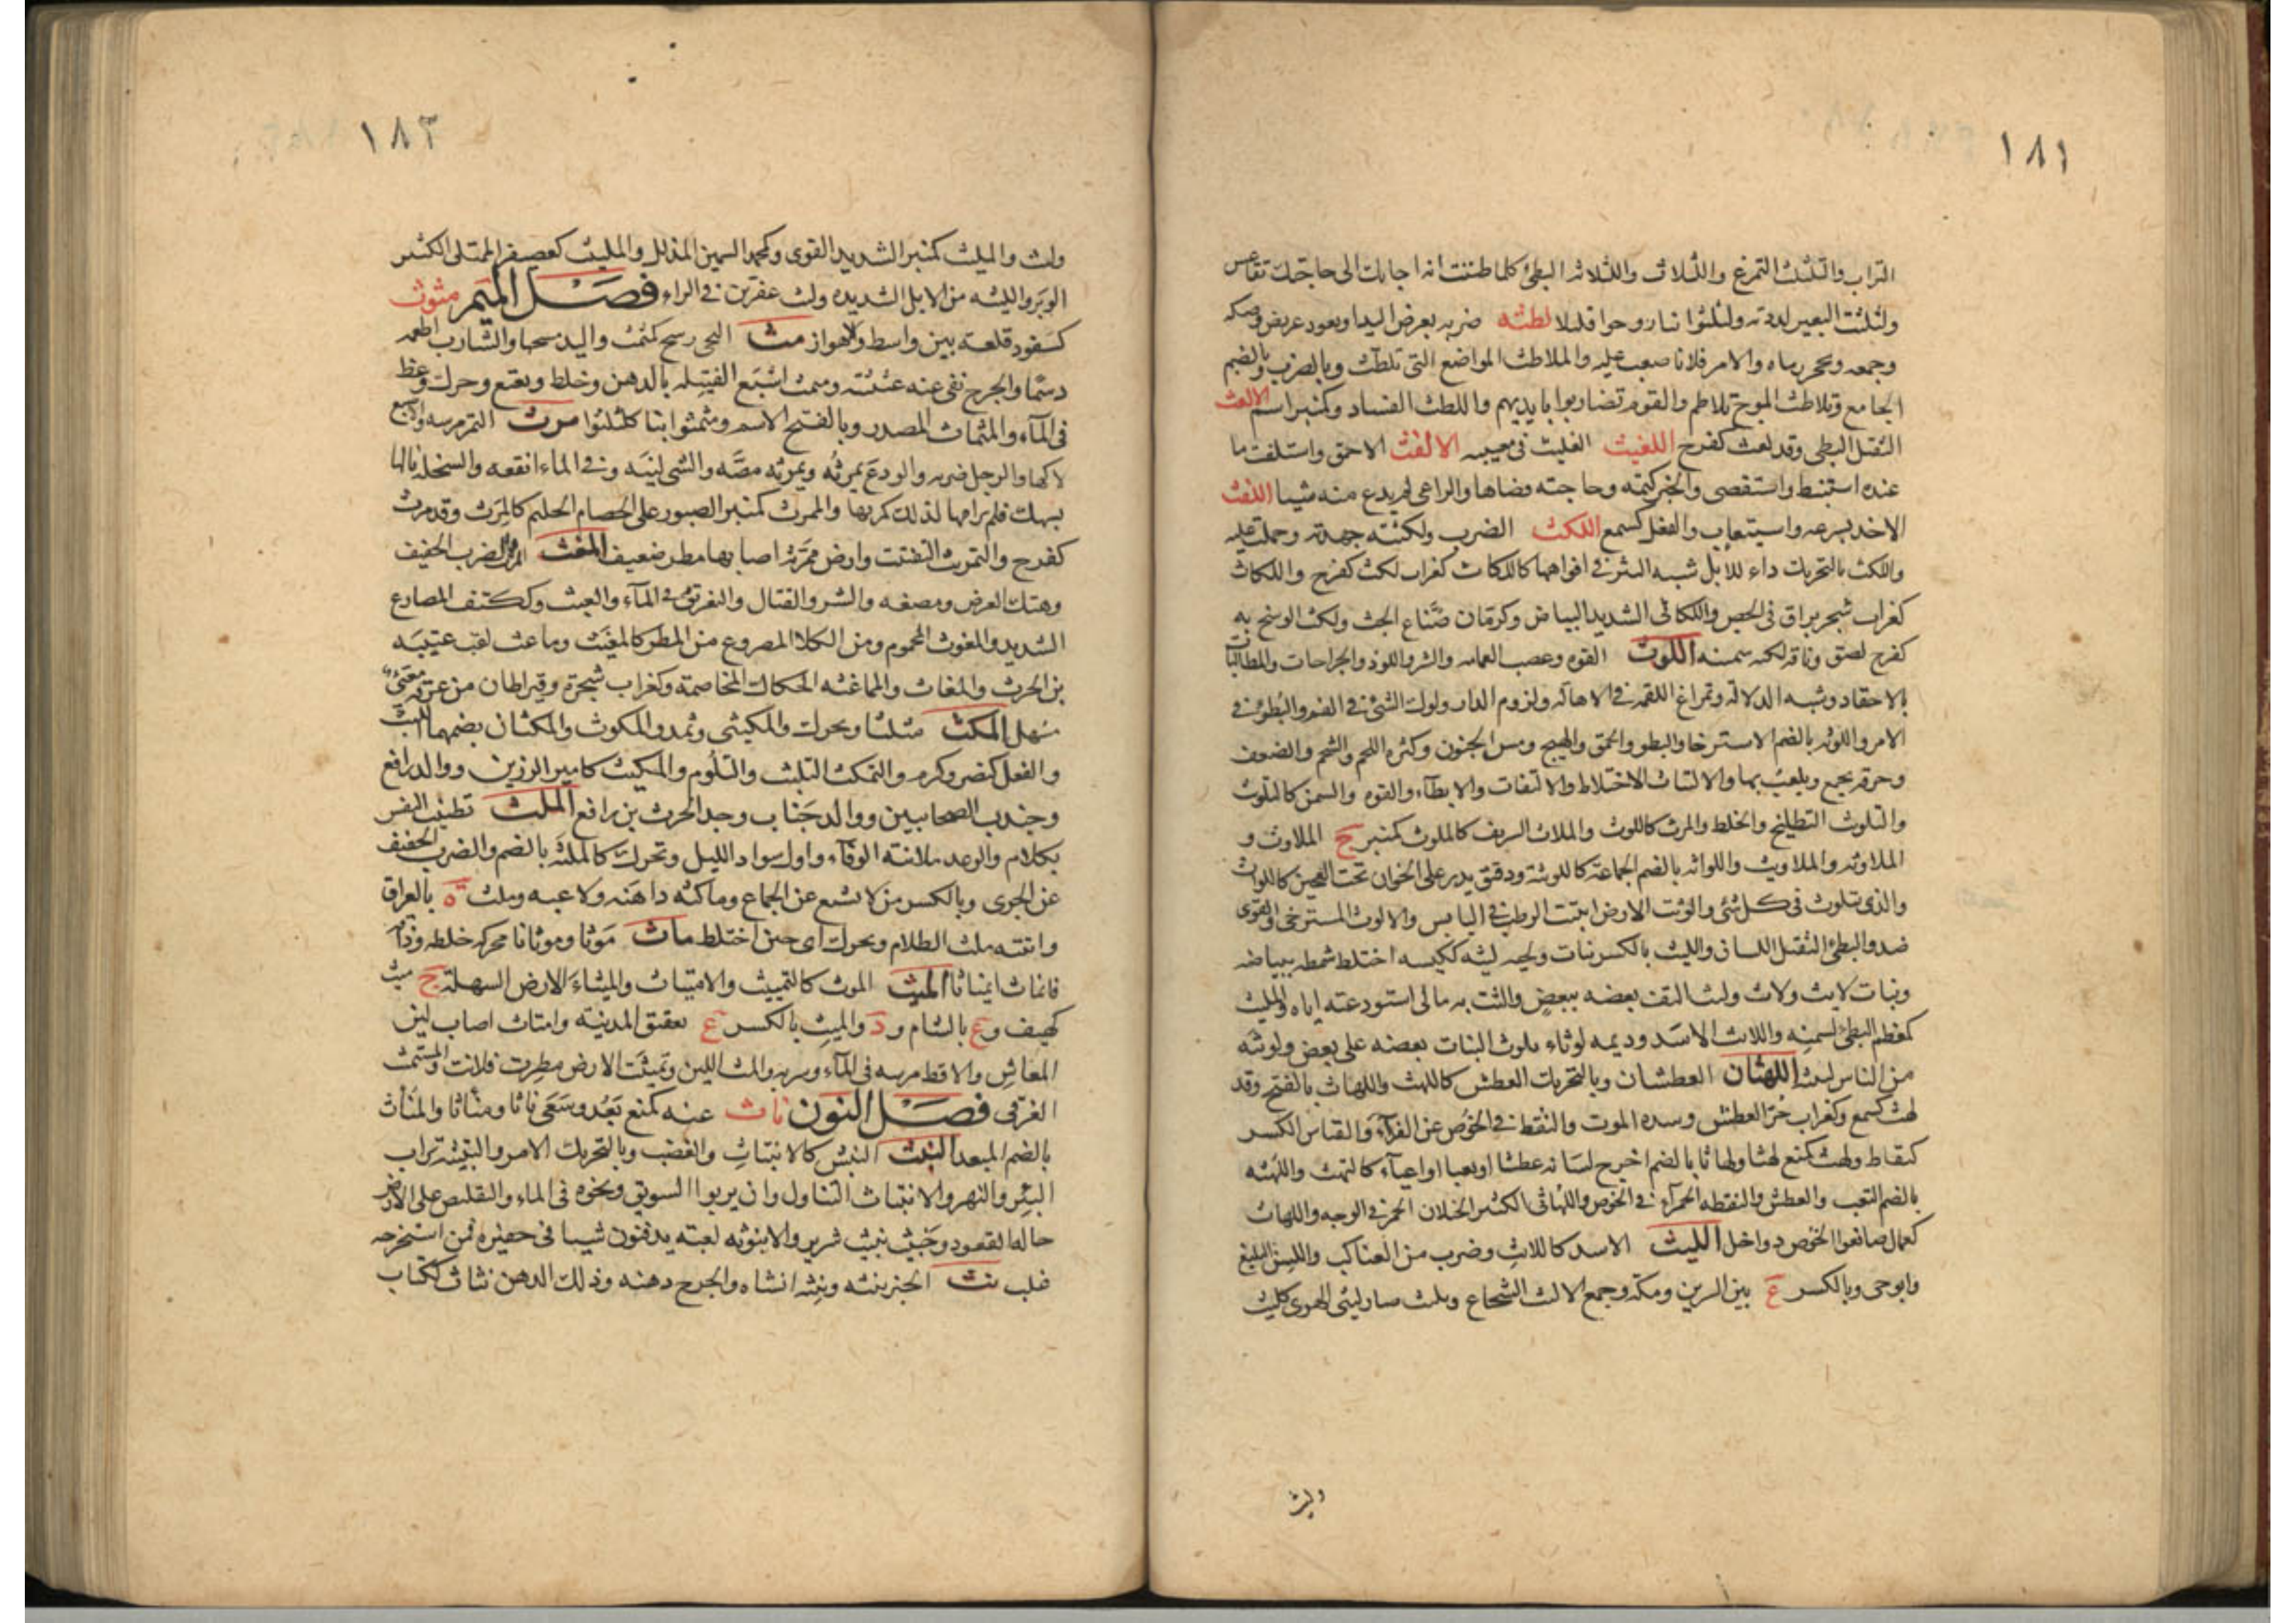 ١٨١
التراب والتلثلث التمرغ واللثلاث واللثلاثه البطئ كلما ظننت انه اجابك الى حاجتك تقاعس
ولثلثت البعير لددته ولثلثوا بنا روحوا قليلا لطثه ضربه بعرض اليد او بعود عريض وصكه
وجمعه وبحجر رماه والامر فلانا صعب عليه والملاطث المواضع التى تلطث وبالضرب وبالضم
الجامع وتلاطث الموج تلاطم والقوم تضاربوا بايديهم واللطث الفساد وكمنبر اسم الالعث
الثقيل البطى وقد لعث كفرح اللغيث الغليث فى معييه الالفث الاحمق واستلفث ما
عنده استنبط واستقصى والخبر كتمه وحاجته قضاها والراعى لم يدع منه شيا اللقث
الاخذ بسرعه واستيعاب والفعل كسمع اللكث الضرب ولكثه جهده وحملت عليه
واللكث بالتحريك داء للابل شبه البثر فى افواهها كاللكاث كغراب لكث كفرح واللكاث
كغراب حجر براق فى الجص واللكاثى الشديد البياض وكرمان صناع الجص ولكث الوسخ به
كفرح لصق وناقه لكثه سمنه اللوث القوه وعصب العمامه والشر واللوذ والجراحات والمطالبات
بالاحقاد وشبه الدلالة وتمراغ اللقمه فى الاهاله ولزوم الدار ولوك الشئ فى الفم والبطوء فى
الامر واللوثه بالضم الاسترخا والبطو والحمق والهيج ومس الجنون وكثره اللحم والشحم والضعف
وخرقه تجمع ويلعب بها والالتياث الاختلاط والالتفات والابطآء والقوه والسمن كالتلوث
والتلويث التلطيخ والخلط والمرث كاللوث والملاث الشريف كالملوث كمنبر ج الملاوث و
الملاوثه والملاويث واللواثه بالضم الجماعة كاللويثة ودقيق يدر على الخوان تحت العجين كاللواث
والذى يتلوث فى كل شئ والوثت الارض انبتت الرطب فى اليابس والالوث المسترخى والقوى
ضد والبطئ الثقيل اللسانى والليث بالكسر نبات ولحيه ليثه ككيسه اختلط شمطه ببياضه
ونبات لايث ولاث وليث التف بعضه ببعض والتث به مالى استودعته اياه والمليث
كمعظم البطئ لسمنه واللائث الاسد وديمه لوثاء تلوث النبات بعضه على بعض ولويثه
من الناس لبيثه اللهثان العطشان وبالتحريك العطش كاللهث واللهاث بالفتح وقد
لهث كسمع وكغراب حر العطش وشده الموت والنقط فى الخوص عن الفراء والقياس الكسر
كنقاط ولهث كمنع لهثا ولهاثا بالضم اخرج لسانه عطشا او تعبا او اعيآء كالتهث واللهثه
بالضم التعب والعطش والنقطه الحمرآء فى الخوص واللهاثى الكثير الخيلان الحمر فى الوجه واللهاث
كعمال صانعوا الخوص دواخل الليث الاسد كاللائث وضرب من العناكب واللسن البليغ
وابو حى وبالكسر ع بين السرين ومكة وجمع الاليث الشجاع وتليث صار ليثى الهوى كليث
وليث
١٨٣
وليث والمليث كمنبر الشديد القوى وكمحمد السمين المذلل والمليث كعصيفر الممتلى الكثير
الوبر والليثه من الابل الشديده وليث عفرين فى الراء فصل الميم متوث
كسفود قلعه بين واسط والاهواز مث النحى رشح كمثمث واليد مسحها والشارب اطعمه
دسما والجرح نفى عنه غثيثته ومثمث اشبع الفتيله بالدهن وخلط وتعتع وحرك وغط
فى المآء والمثماث المصدر وبالفتح الاسم ومثمثوا بنا كلثلثوا مرث التمر مرسه والاصبع
لاكها والرجل ضربه والودع يمرثه ويمرثه مصه والشى لينه وفى الماء انقعه والسخله نالها
بسهك فلم ترامها لذلك كمرثها والممرث كمنبر الصبور على الخصام الحليم كالمرث وقد مرث
كفرح والتمرث التفتت وارض ممرثة اصابها مطر ضعيف المغث المرث والضرب الخفيف
وهتك العرض ومضغه والشر والقتال والتغريق فى المآء والعبث وككتف المصارع
الشديد والمغوث المحموم ومن الكلا المصروع من المطر كالمغيث وماغث لقب عتيبه
بن الحرث والمغاث والمماغثه الحكاك المخاصمة وكغراب شجرة وقيراطان من عرقه مقيئ
مسهل المكث مثلثا ويحرك والمكيثى ويمد والمكوث والمكثان بضمهما اللبث
والفعل كنصر وكرم والتمكث التلبث والتلوم والمكيث كامير الرزين ووالد رافع
وجندب الصحابيين ووالد جناب وجد الحرث بن رافع الملث تطييب النفس
بكلام والوعد بلا نيه الوفآء واول سواد الليل وتحرك كالملثة بالضم والضرب الخفيف
عن الجرى وبالكسر من لا يشبع عن الجماع ومالثه داهنه ولاعبه وملث ة بالعراق
واتيته ملث الظلام ويحرك اى حين اختلط ماث موثا وموثانا محركه خلطه وذافه
فانماث انمياثا الميث الموث كالتمييث والامتياث والميثاء الارض السهلة ج ميث
كهيف وع بالشام ود والميث بالكسر ع بعقيق المدينه وامتاث اصاب لين
المعاش والاقط مرسه فى المآء وشربه والمث اللين وتميثت الارض مطرت فلانت والمستميث
الغرقى فصل النون نأث عنه كمنع بعد وسعى نأثا ومنأثا والمنأث
بالضم المبعد النبث النبش كالانتباث والغضب وبالتحريك الامر والنبيثة تراب
البئر والنهر والانتباث التناول وان يربوا السويق ونحوه فى الماء والتقليص على الارض
حاله القعود وخبيث نبيث شرير والانبوثه لعبه يدفنون شيا فى حفيره فمن استخرجه
غلب نث الخبر ينثه وينثه افشاه والجرح دهنه وذلك الدهن نثاث ككتاب